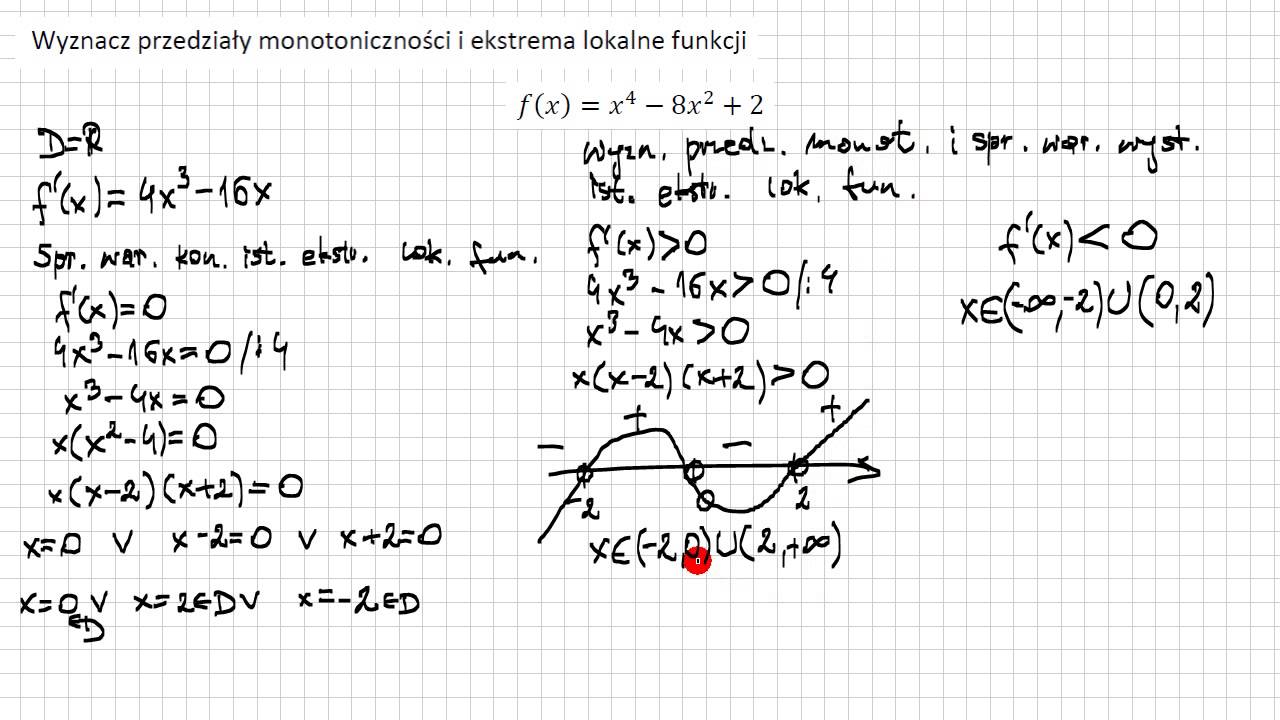 Wyznacz przedziały monotoniczności i ekstrema lokalne funkcji
f(x) = x⁴ − 8x² + 2
D=R
f'(x) = 4x³-16x
Spr. war. kon. ist. ekstr. lok. fun.
f'(x)=0
4x³-16x=0 /:4
x³-4x=0
x(x²-4)=0
x(x-2)(x+2)=0
x=0 ∨ x-2=0 ∨ x+2=0
x=0 ∨ x=2∈D ∨ x=-2∈D
∈D
wyzn. przedz. monot. i spr. war. wyst.
ist. ekstr. lok. fun.
f'(x)>0
4x³-16x>0 /:4
x³-4x>0
x(x-2)(x+2)>0
- + - +
-2 0 2 x
x∈(-2,0)∪(2,+∞)
f'(x)<0
x∈(-∞,-2)∪(0,2)